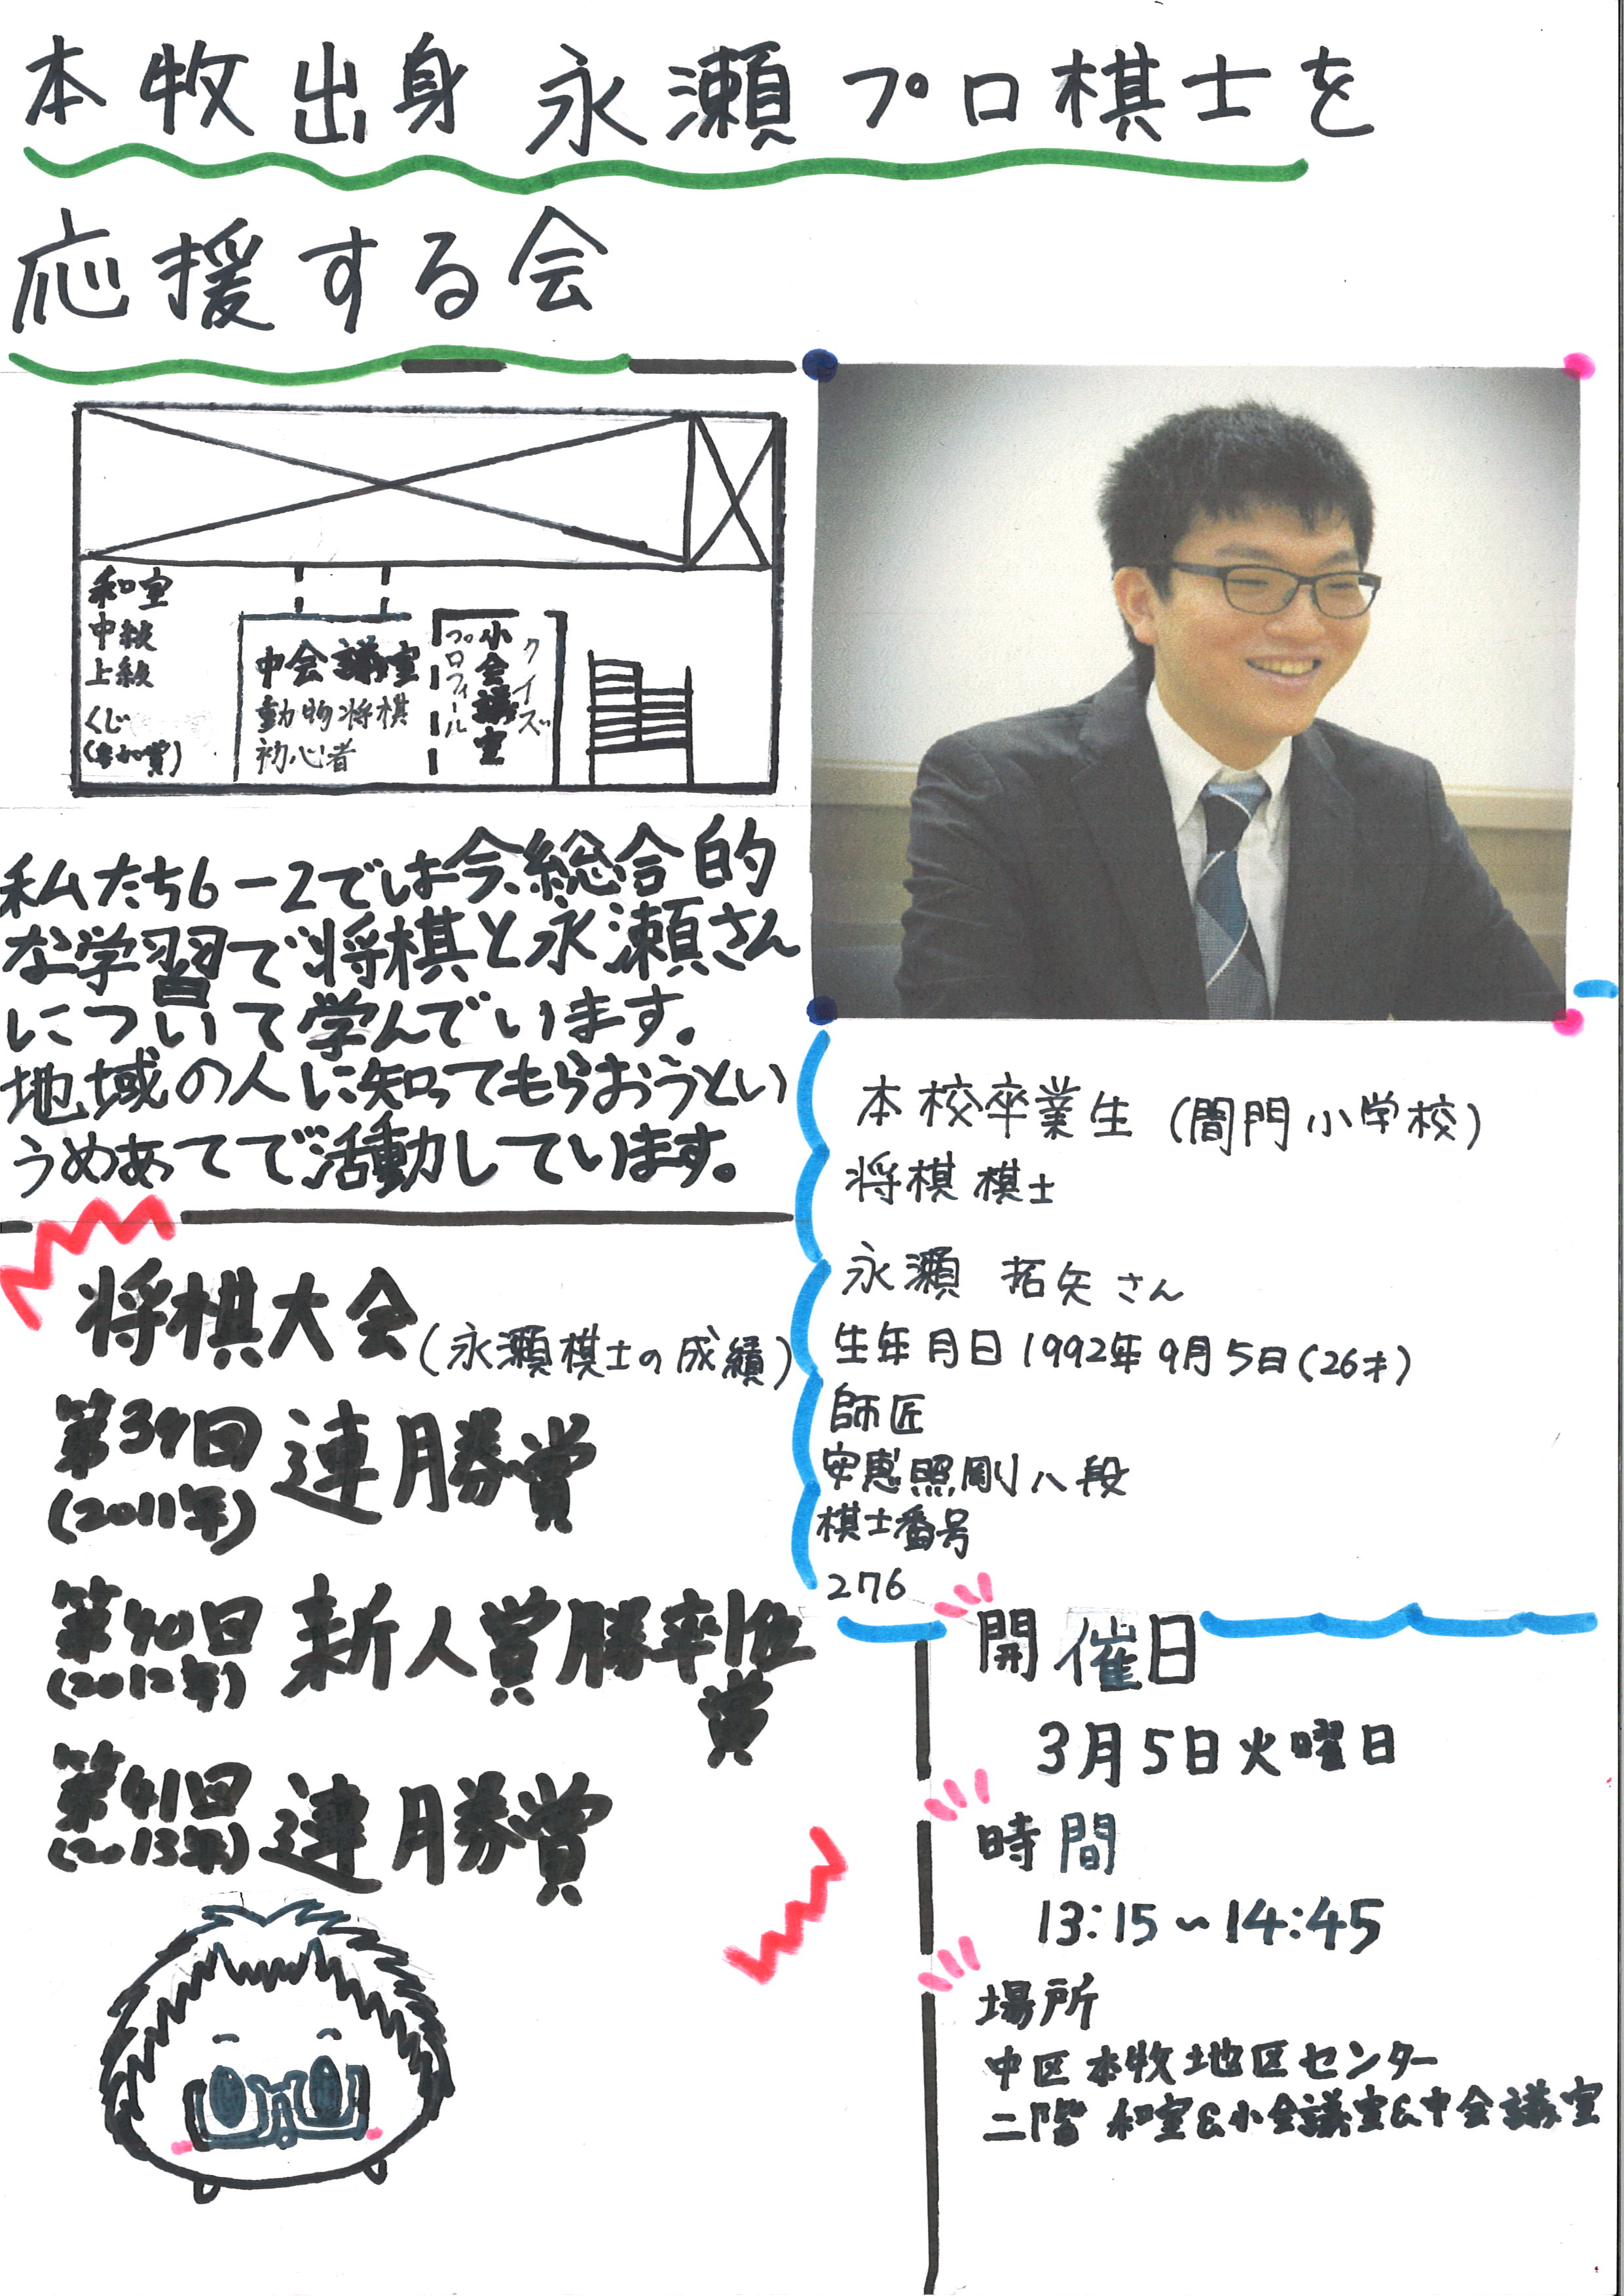 本牧出身 永瀬プロ棋士を
応援する会
和室
中級
上級
くじ
(参加賞)
中会議室
動物将棋
初心者
プロフィール
小会議室
クイズ
私たち6-2では今、総合的
な学習で将棋と永瀬さん
について学んでいます。
地域の人に知ってもらおうとい
うめあてで活動しています。
将棋大会(永瀬棋士の成績)
第39回 連勝賞
(2011年)
第40回 新人賞勝率1位
賞
(2012年)
第41回 連勝賞
(2013年)
本校卒業生(間門小学校)
将棋棋士
永瀬 拓矢さん
生年月日1992年9月5日(26才)
師匠
安恵照剛八段
棋士番号
276
開催日
3月5日火曜日
時間
13:15~14:45
場所
中区本牧地区センター
二階 和室&小会議室&中会議室